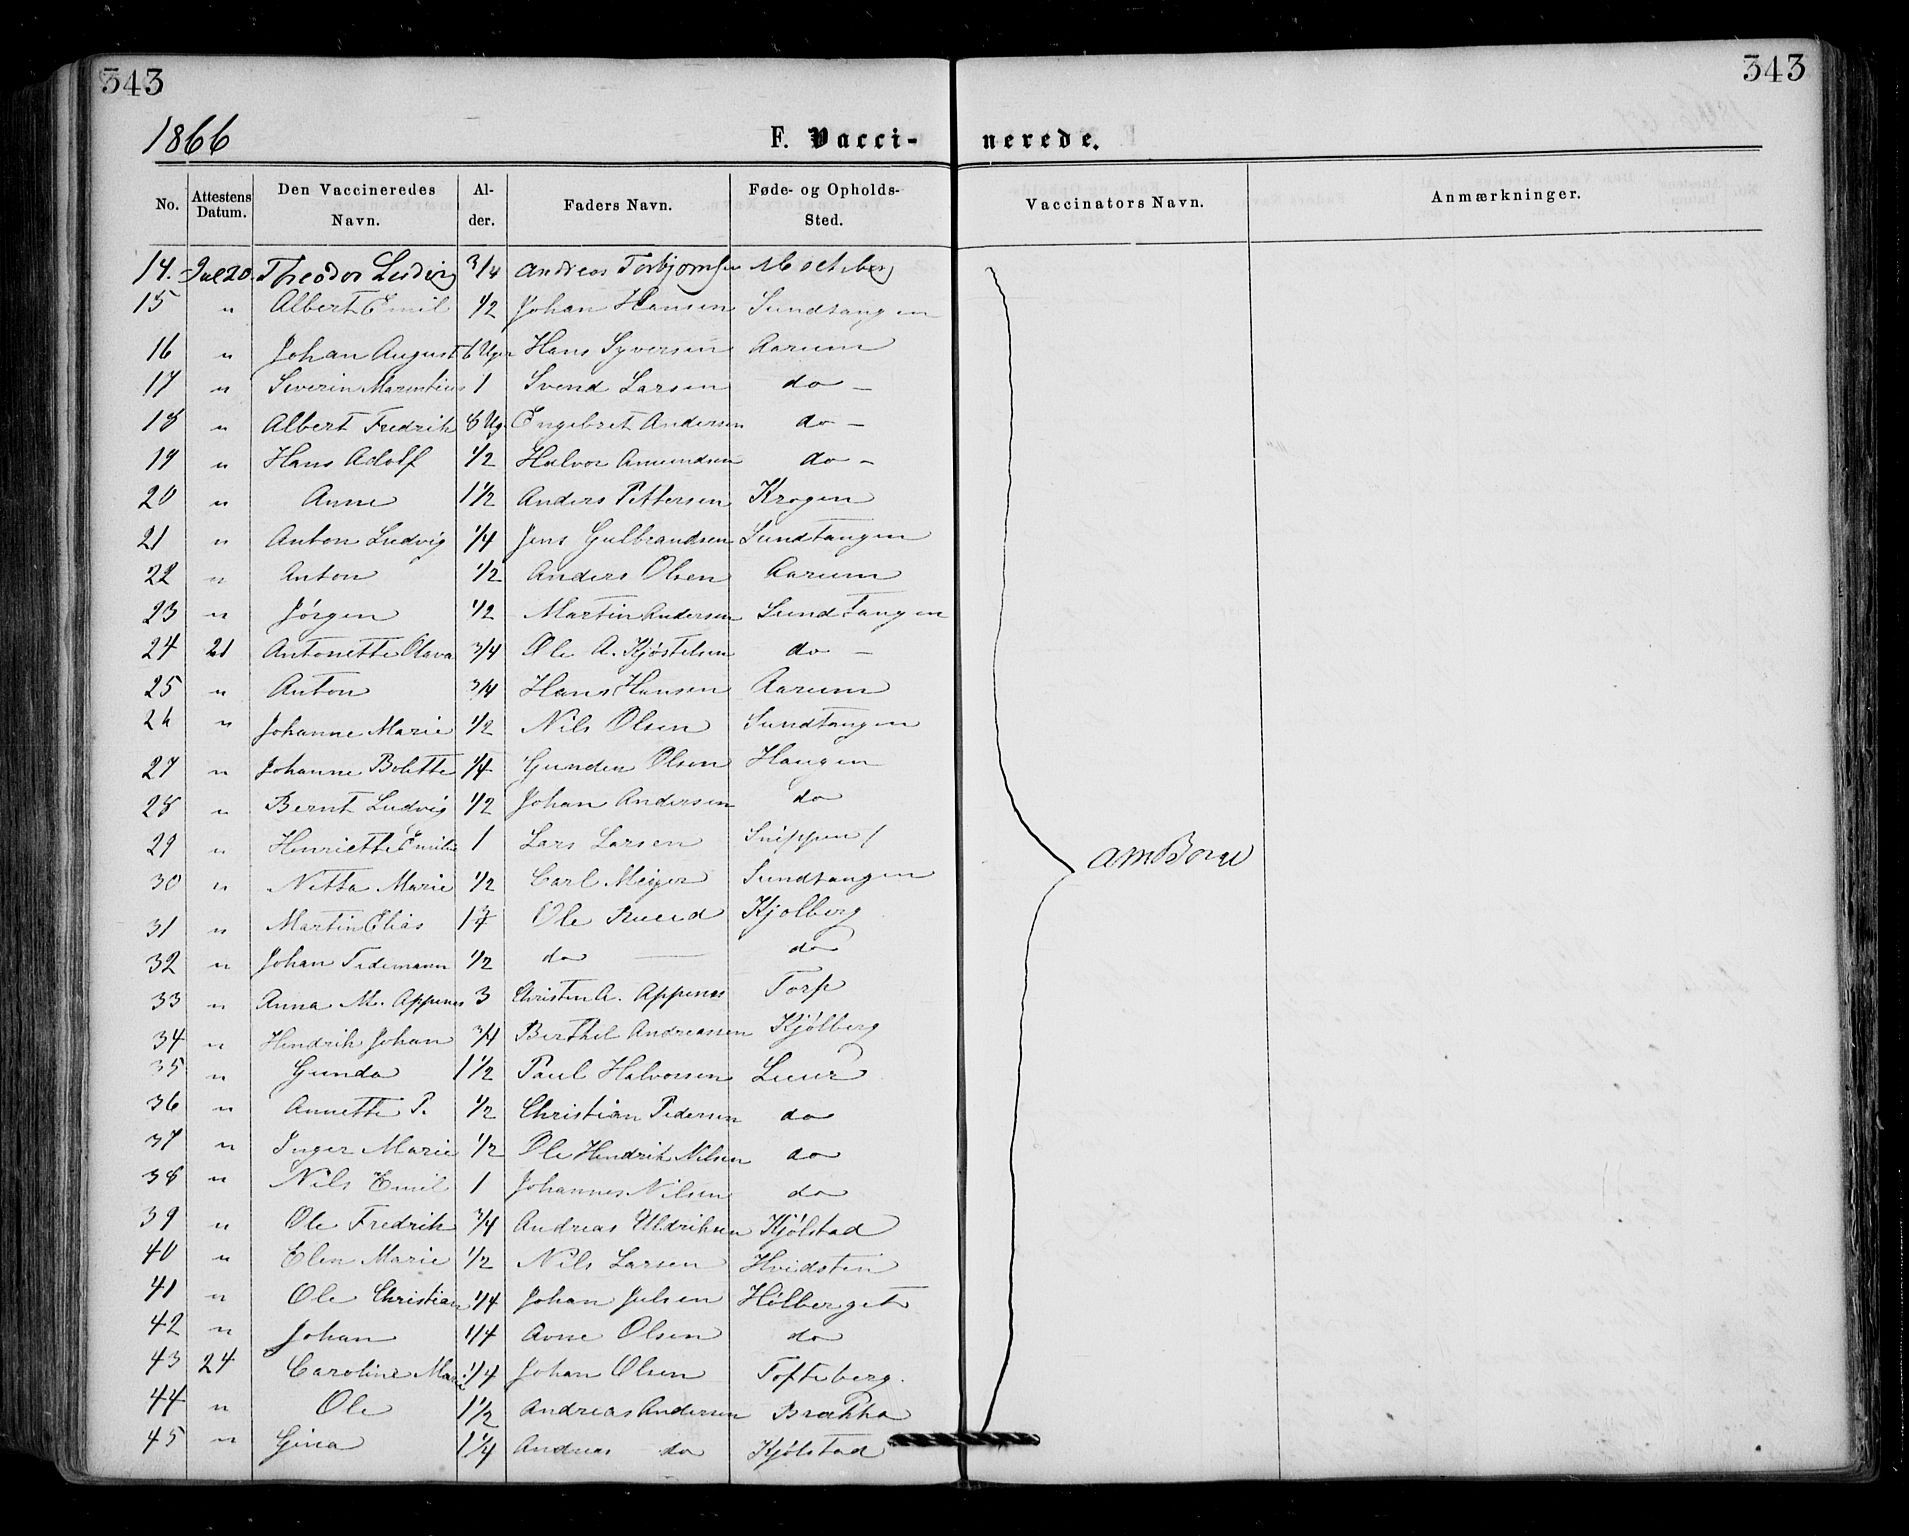 343 343
1866 F. Vacci- nerede.
No. Attestens Datum. Den Vaccineredes Navn. Al-der. Faders Navn. Føde- og Opholds-Sted. Vaccinators Navn. Anmærkninger.
14. Jul 20. Theodor Ludvig 3/4 Andreas Torbjørnsen
15 " Albert Emil 1/2 Johan Hansen Sundtangen
16 " Johan August 6 Uger Hans Syversen Aarum
17 " Severin Marentius 1 Svend Larsen do —
18 " Albert Fredrik 8 Ug. Engebret Andersen do —
19 " Hans Adolf 1/2 Halvor Amundsen do —
20 " Anne 1 1/2 Anders Pettersen Krogen
21 " Anton Ludvig 1/4 Jens Gulbrandsen Sundtangen
22 " Anton 1/2 Anders Olsen Aarum
23 " Jörgen 1/2 Martin Andersen Sundtangen
24 21 Antonette Olava 3/4 Ole A. Kjöstelsen do —
25 " Anton 3/4 Hans Hansen Aarum
26 " Johanne Marie 1/2 Nils Olsen Sundtangen
27 " Johanne Bolette 1/4 Gunder Olsen Haugen
28 " Bernt Ludvig 1/2 Johan Andersen do
29 " Henriette Emilie 1 Lars Larsen Snippen
30 " Netta Marie 1/2 Carl Meijer Sundtangen
A M Borge
31 " Martin Elias Ole Ruud Kjølberg
32 " Johan Tidemann 1/2 do — do
33 " Anna M. Appenes 3 Christen A. Appenes Torp
34 " Hendrik Johan 3/4 Berthel Andreassen Kjölberg
35 " Gunda 1 1/2 Paul Halvorsen Lunr
36 " Annette P. 1/2 Christian Pedersen do
37 " Inger Marie 1/2 Ole Hendrik Nilsen do
38 " Nils Emil 1 Johannes Nilsen do
39 " Ole Fredrik 3/4 Andreas Uldriksen Kjölstad
40 " Elen Marie 1/2 Nils Larsen Hvidsten
41 " Ole Christian 1/4 Johan Julsen Hölberget
42 " Johan 1/4 Arne Olsen do
43 24 Caroline Marie 1/4 Johan Olsen Tofteberg.
44 " Ole 1 1/2 Andreas Andersen Brækka
45 " Gina 1 1/4 Andreas do Kjölstad